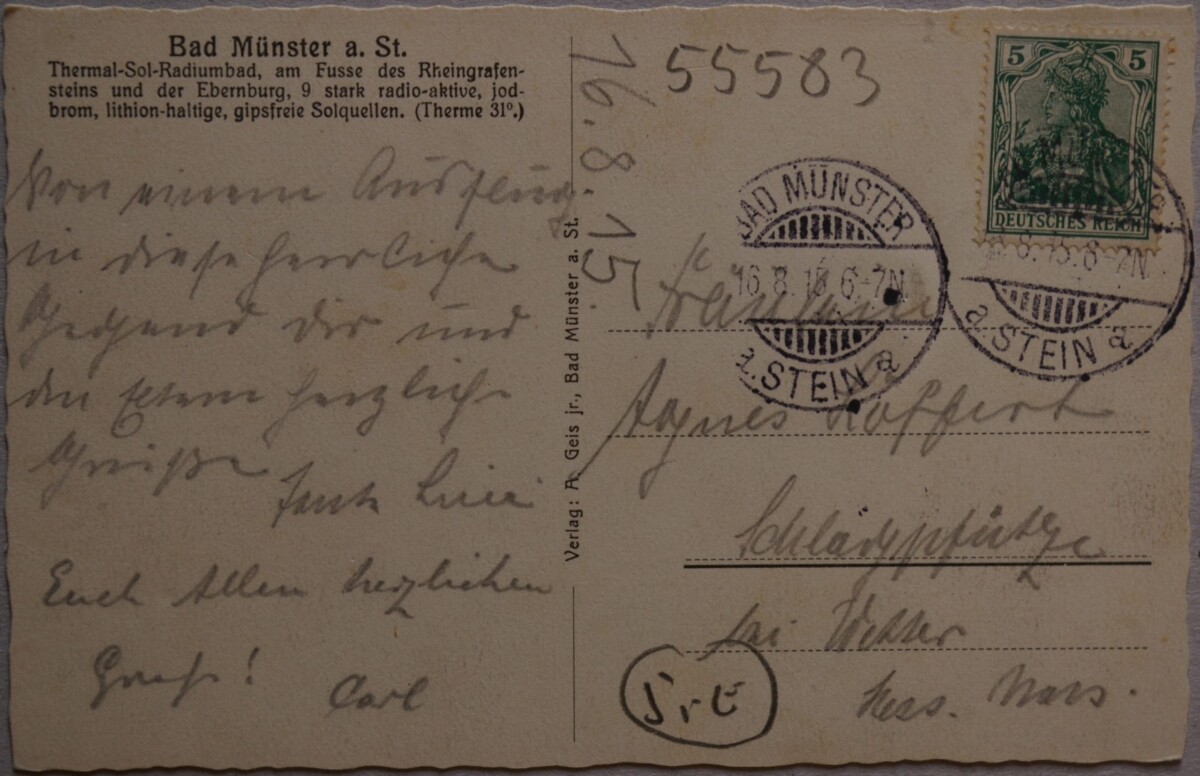 Bad Münster a. St.
Thermal-Sol-Radiumbad, am Fusse des Rheingrafen-
steins und der Ebernburg, 9 stark radio-aktive, jod-
brom, lithion-haltige, gipsfreie Solquellen. (Therme 31º.)
Von einem Ausflug
in diese herrliche
Gegend Dir und
den Eltern herzliche
Grüße
Tante
Euch Allen herzlichen
Gruß!
Carl
Verlag: A. Geis jr., Bad Münster a. St.
16. 8. 15
55583
5
5
DEUTSCHES REICH
BAD MÜNSTER
16.8.15.6-7N
a. STEIN a
8.15.6-7N
a. STEIN a
Fräulein
Agnes
bei Wetter
Hess. Nass.